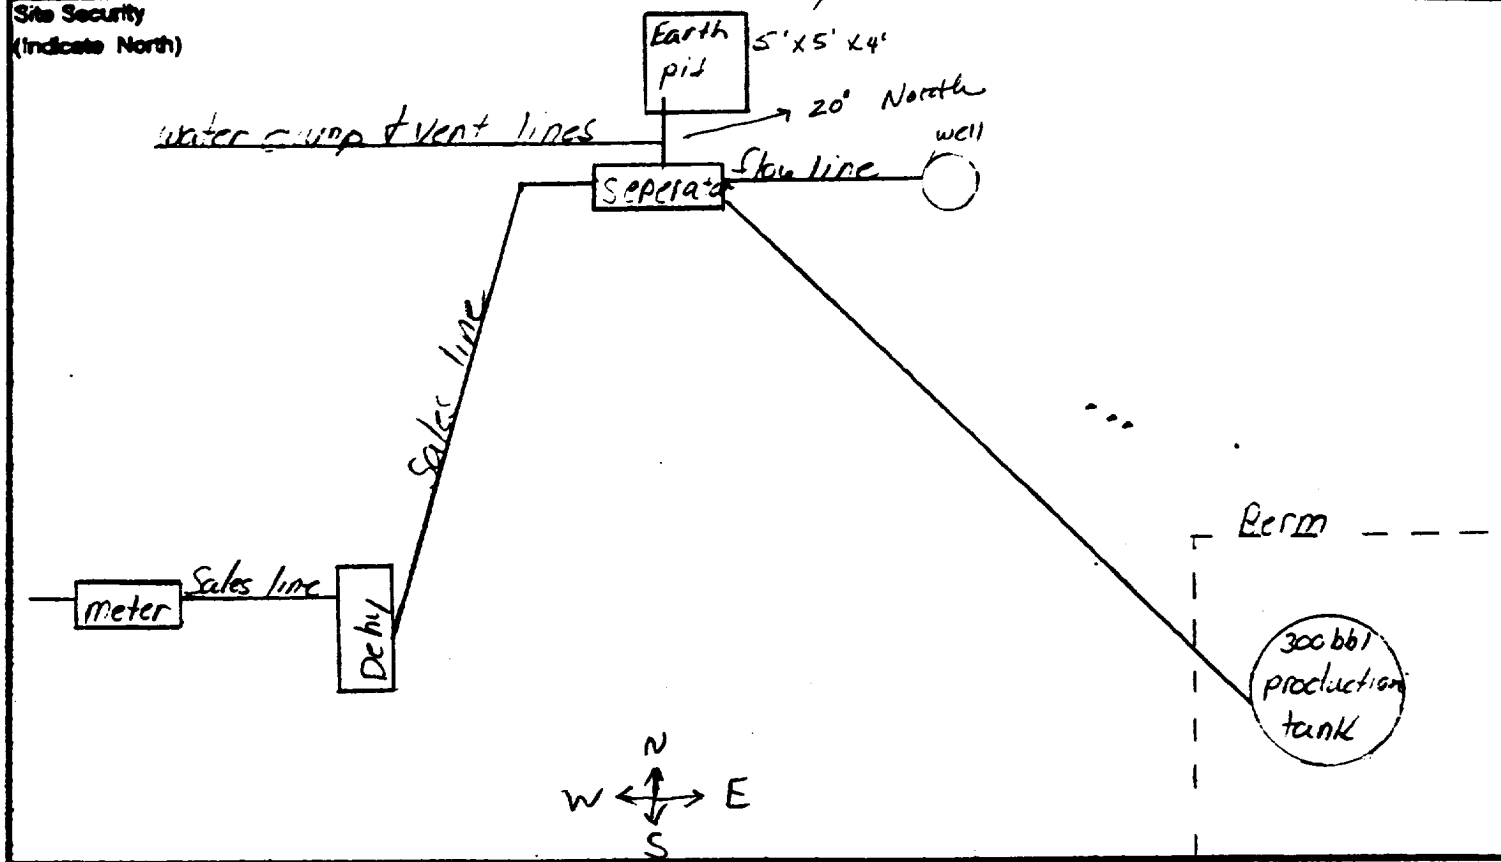 Site Security
(Indicate North)
Earth
pit
5' x 5' x 4'
20° North
water dump & vent lines
well
Seperator
flow line
Sales line
Berm
Sales line
meter
Dehy
300 bbl
production
tank
N
W E
S